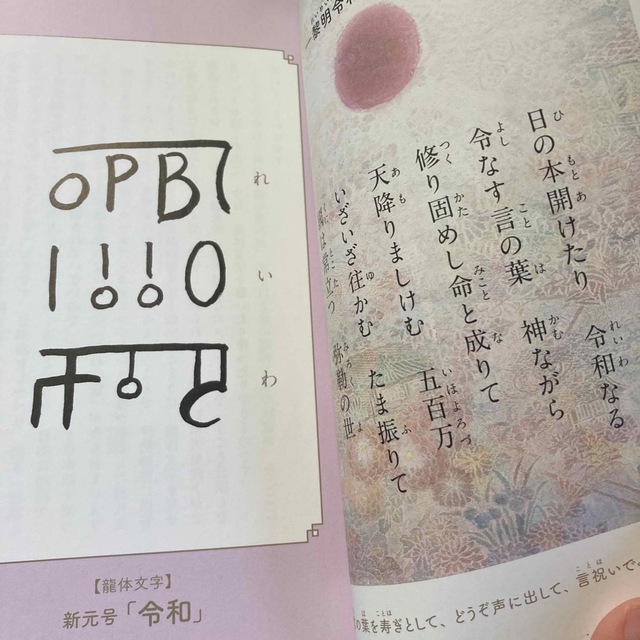 黎明令
日の本開けたり 令和なる
令なす言の葉 神ながら
修り固めし命と成りて 五百万
天降りましけむ たま振りて
いざいざ往かむ 弥勒の世
は常立つ
の葉を寿ぎとして、どうぞ声に出して、言祝いで
れ
い
わ
【龍体文字】
新元号「令和」